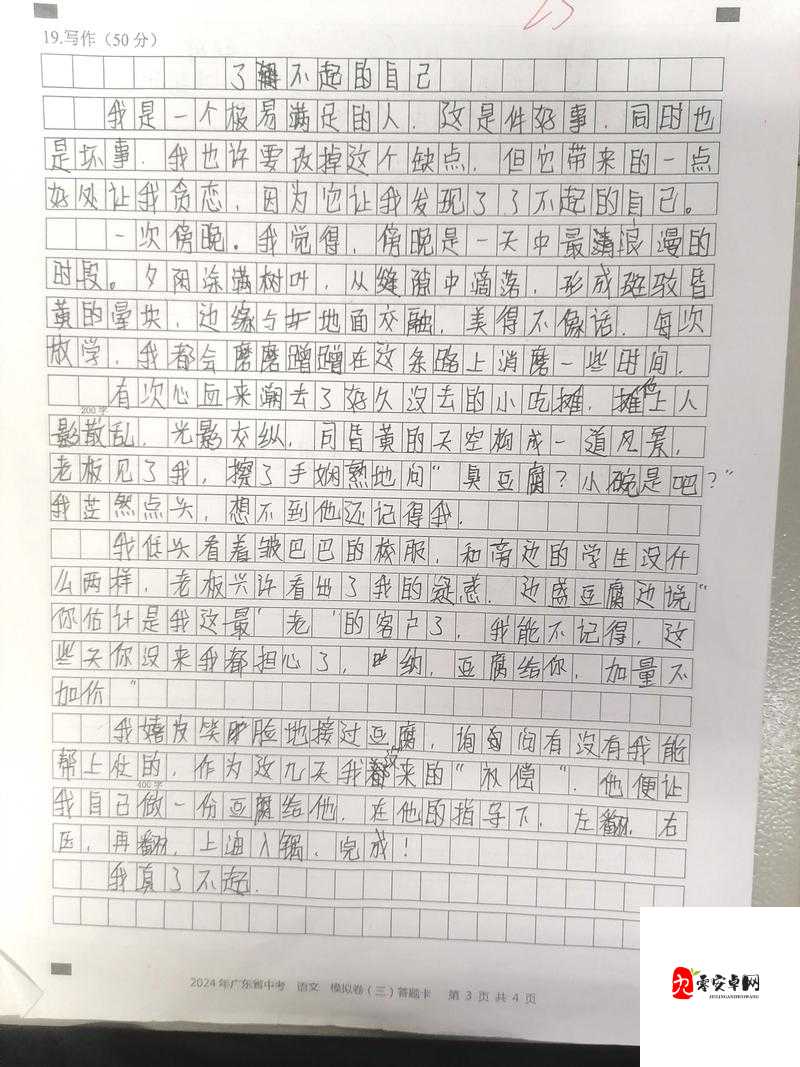 25
19.写作（50分）
了不起的自己
我是一个极易满足的人．这是件好事．同时也
是坏事．我也许要改掉这个缺点．但它带来的一点
好处让我贪恋．因为它让我发现了了不起的自己。
一次傍晚。我觉得，傍晚是一天中最浪漫的
时段。夕阳涂满树叶，从缝隙中滴落，形成斑驳昏
黄的晕块，边缘与地面交融，美得不像话．每次
放学，我都会磨磨蹭蹭在这条路上消磨一些时间．
有次心血来潮去了好久没去的小吃摊，摊上人
200字
影散乱，光影交纵，同昏黄的天空构成一道风景，
老板见了我，擦了手娴熟地问“臭豆腐？小碗是吧？”
我茫然点头，想不到他还记得我．
我低头看着皱巴巴的校服，和旁边的学生没什
么两样，老板兴许看出了我的疑惑．边盛豆腐边说“
你估计是我这最“老”的客户了，我能不记得，这
些天你没来我都担心了，呐，豆腐给你，加量不
加价”
我嬉皮笑脸地接过豆腐，询问有没有我能
帮上忙的，作为这几天我没来的“补偿”．他便让
400字
我自己做一份豆腐给他，在他的指导下，左翻，右
压，再翻，上油入锅，完成！
我真了不起．
2024年广东省中考 语文 模拟卷（三）答题卡 第3页共4页
零安卓网